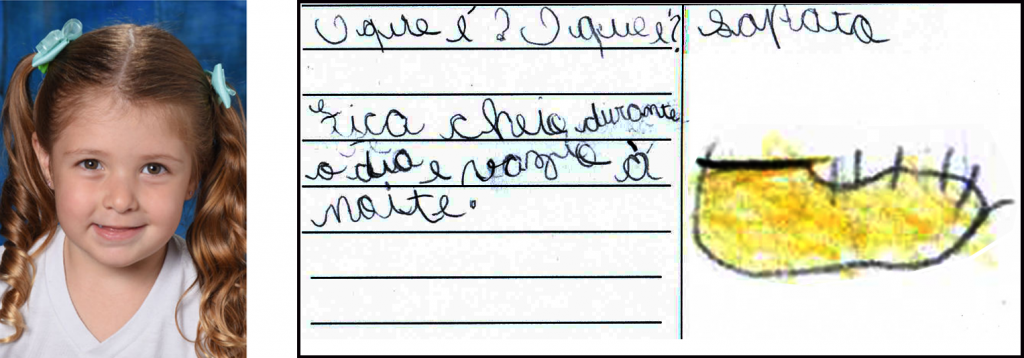 O que é? O que é?
sapato
Fica cheio durante
o dia e vazio à
noite.